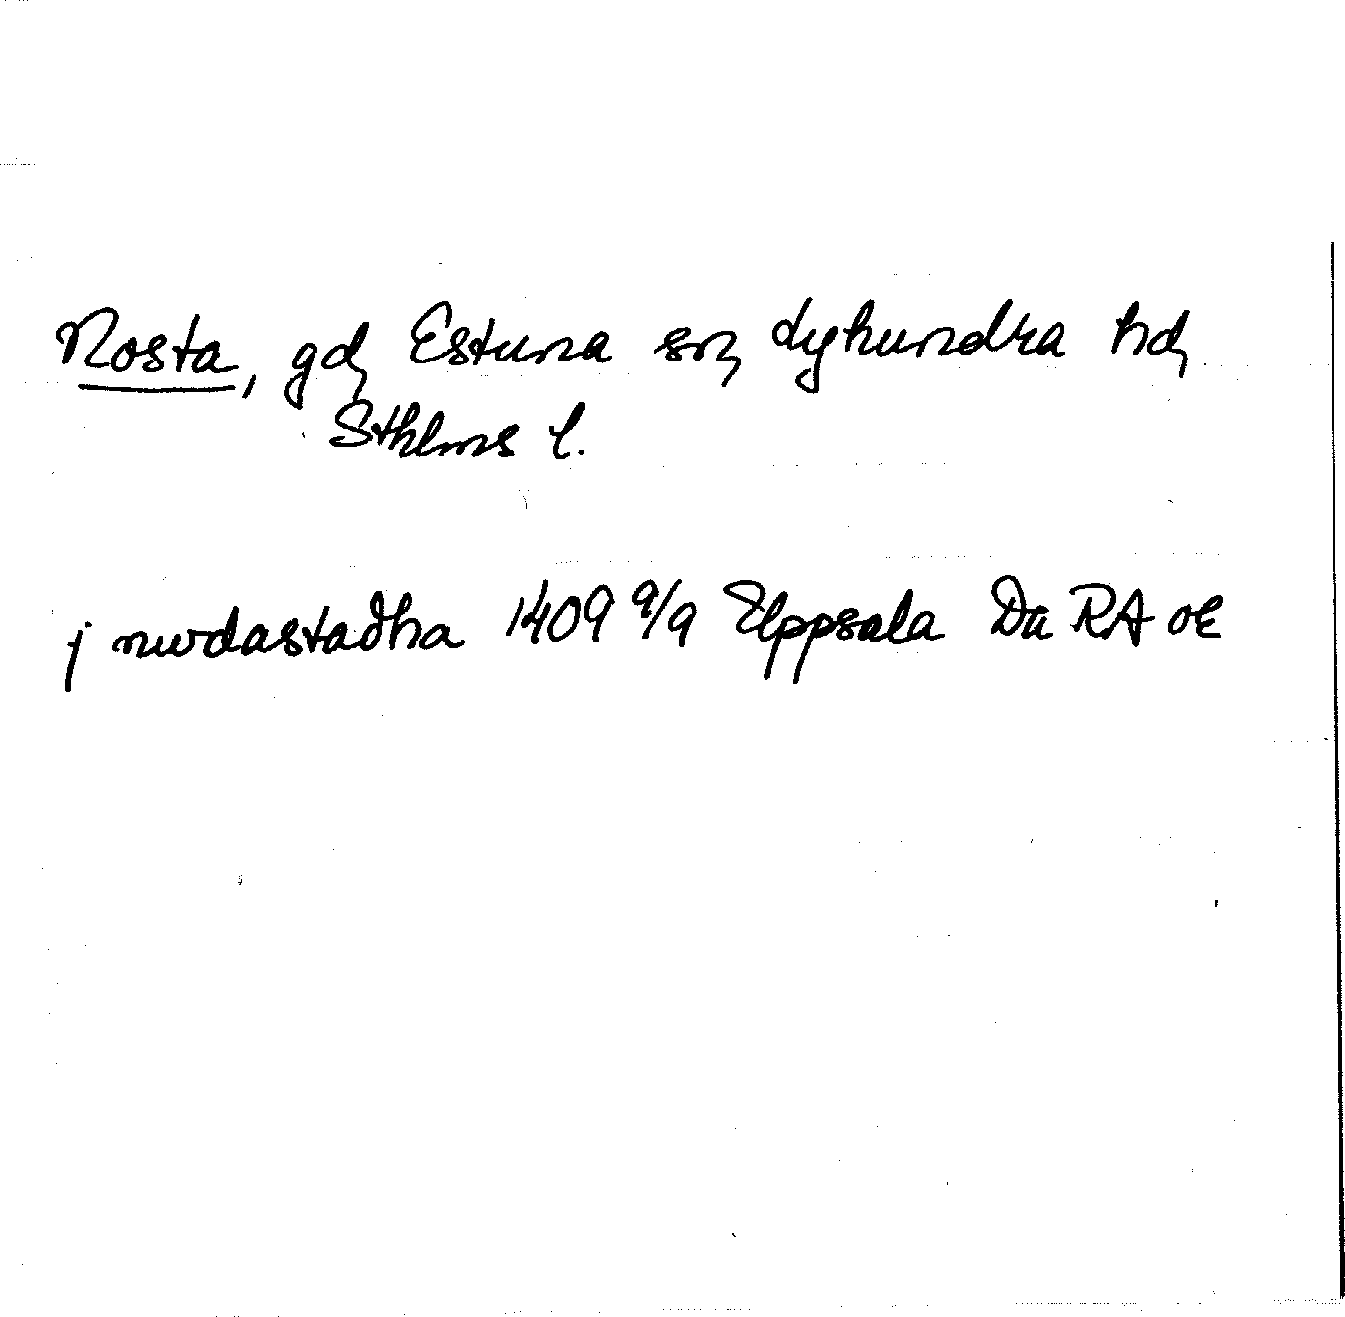 Nosta, gd, Estuna sn, Lyhundra hd,
Sthlms l.
j nurdastadha 1409 9/9 Uppsala Da RA oE